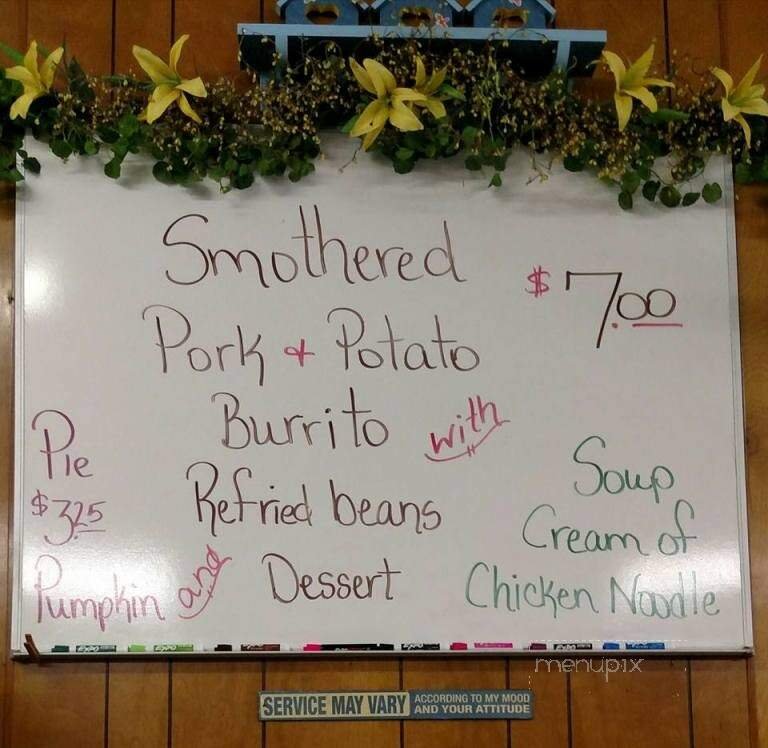 Smothered
$7.00
Pork & Potato
Burrito with
Refried beans
and Dessert
Pie
$3.25
Pumpkin
Soup
Cream of
Chicken Noodle
EXPO EXPO EXPO
menupix
SERVICE MAY VARY
ACCORDING TO MY MOOD
AND YOUR ATTITUDE